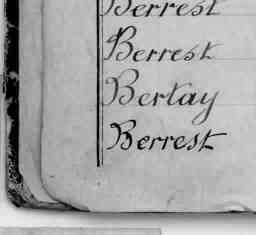 Berrest
Berrest
Bertay
Berrest